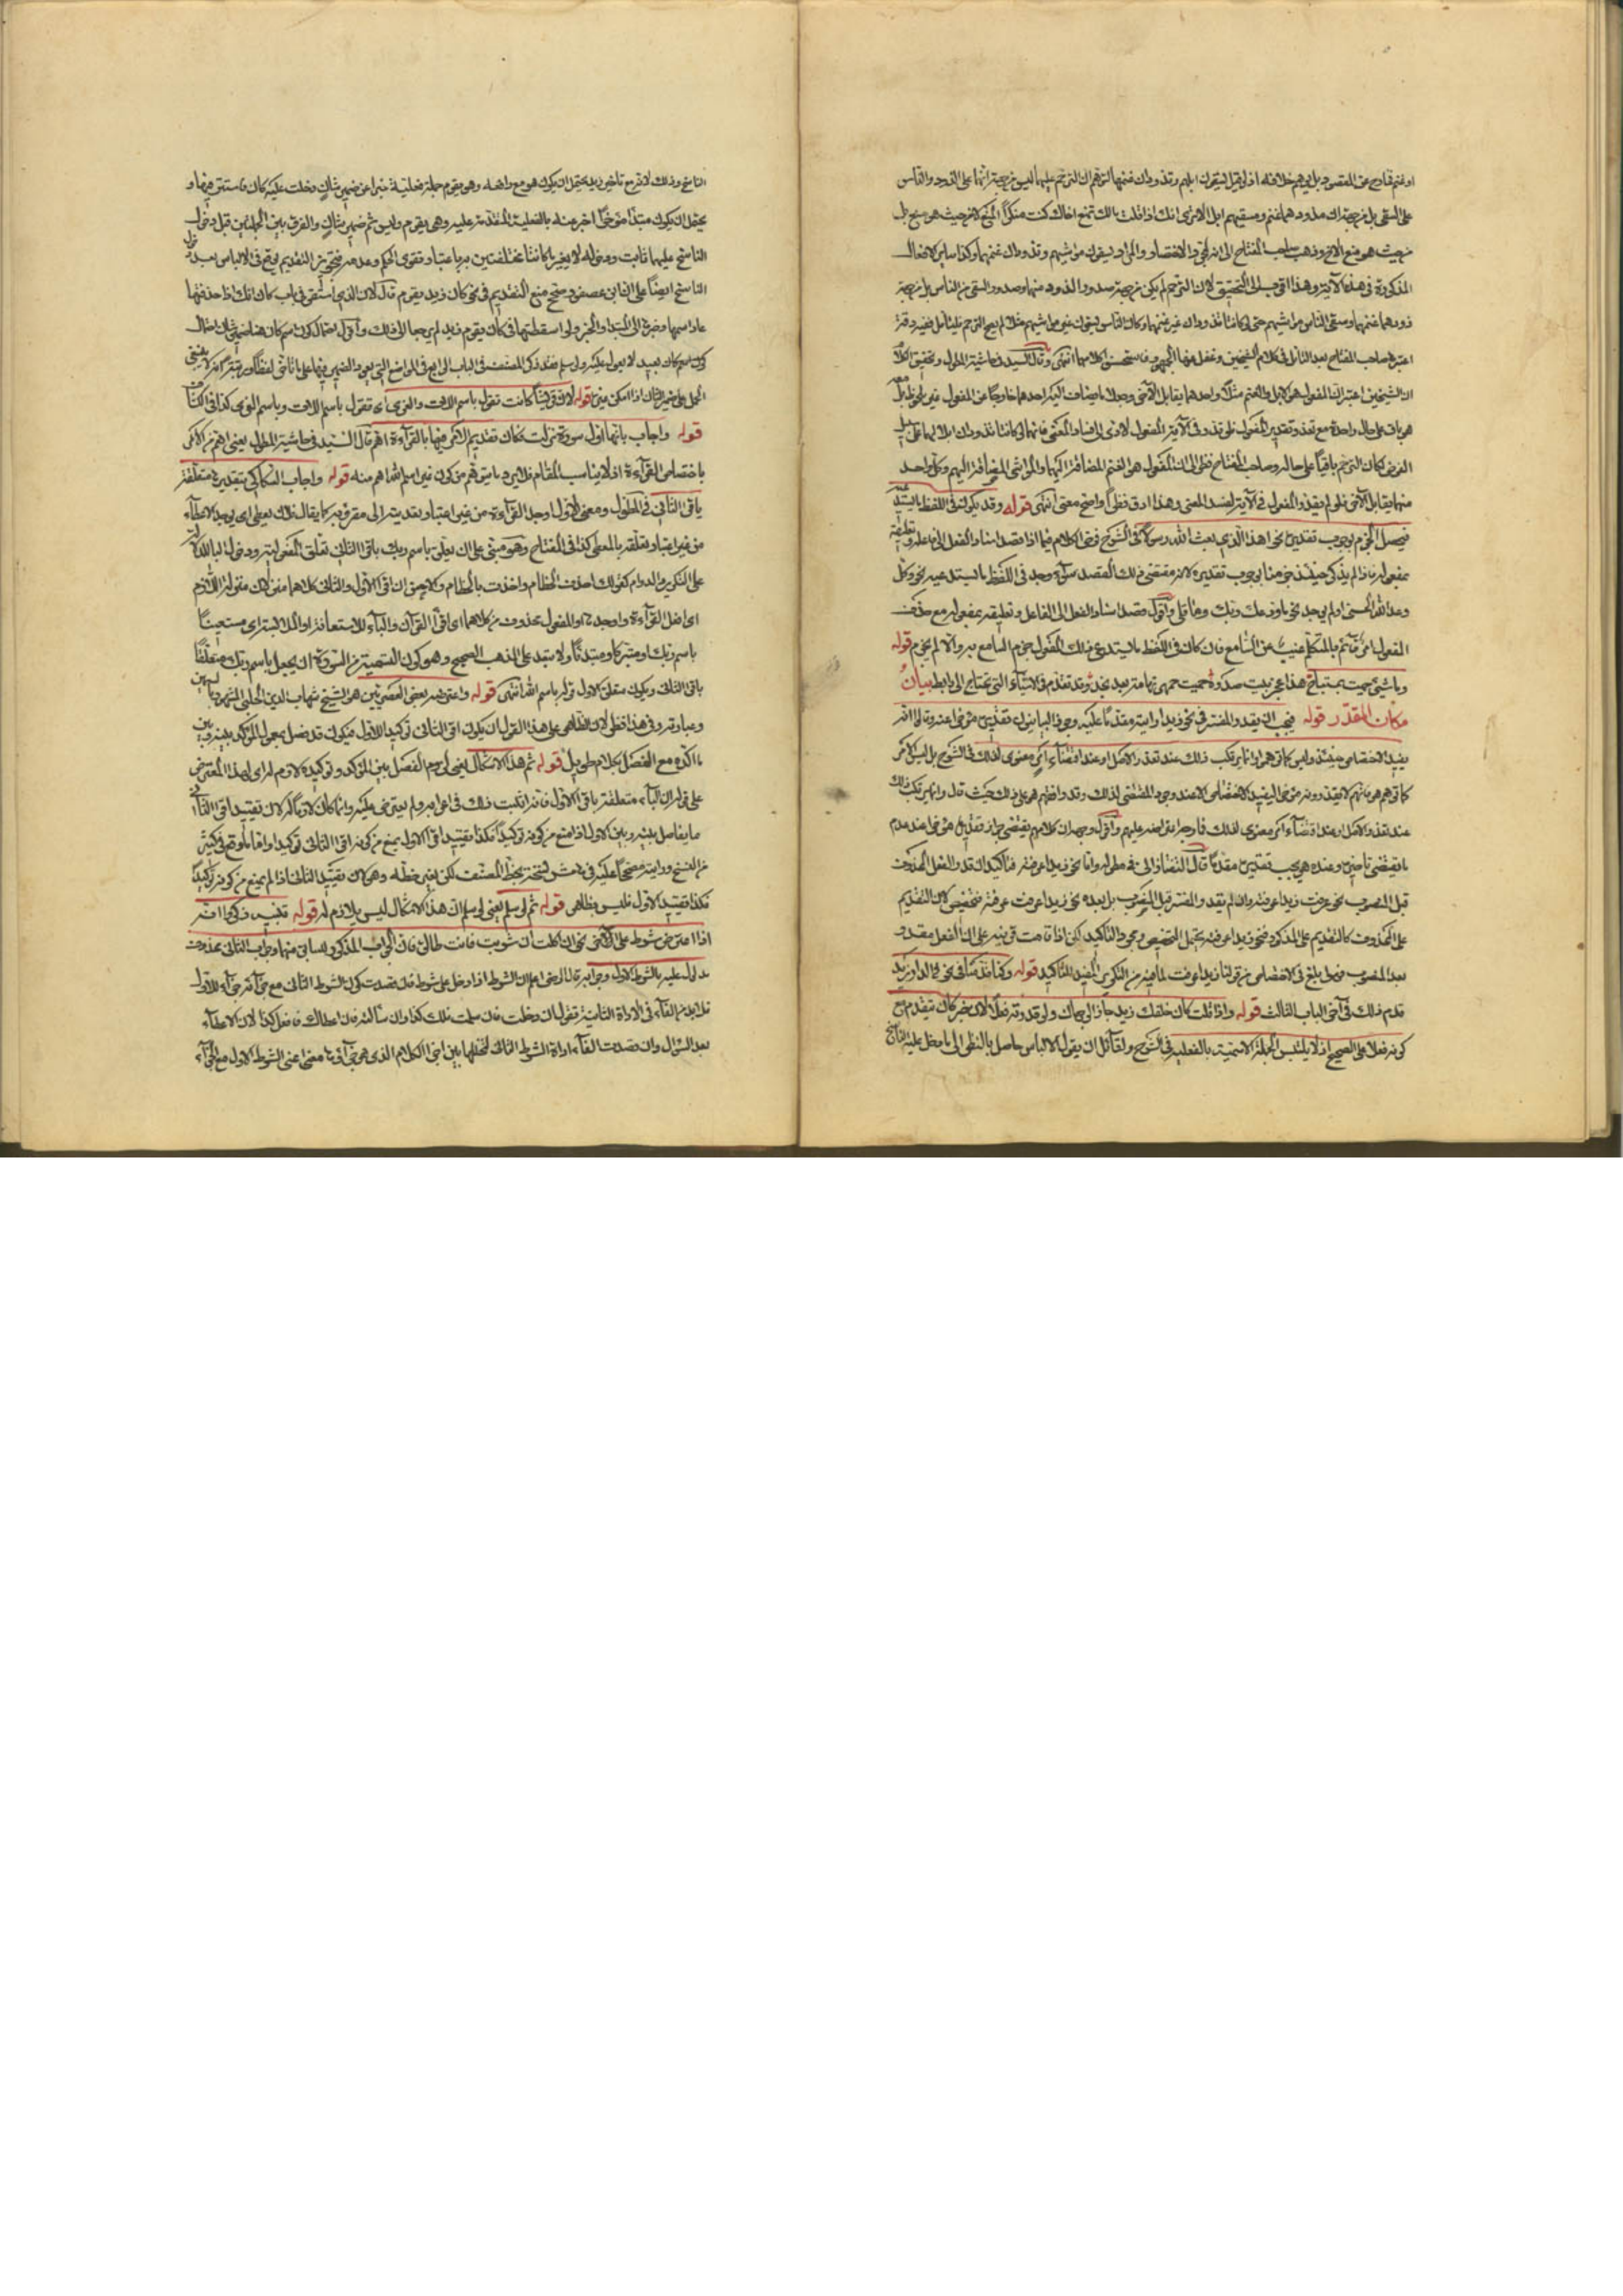 او غنم خارج عن المقصود بل يوهم خلافه اذ لو قيل يسقون ابلهم وتذودان غنمهما لتوهم ان الترحم عليهما ليس من جهة انهما على الذود والناس
على السقى بل من جهة ان مذودهما غنم ومسقيهم ابل الا ترى انك اذا قلت مالك تمنع اخاك كنت منكرا المنع لا من حيث هو منع بل
من حيث هو منع الاخ وذهب صاحب المفتاح الى انه لمجرد الاختصار والمراد يسقون مواشيهم وتذودان غنمهما وكذا سائر الافعال
المذكورة فى هذه الآية وهذا اقرب الى التحقيق لان الترحم لم يكن من جهة صدور الذود منهما وصدور السقى من الناس بل من جهة
ذودهما غنمهما وسقى الناس مواشيهم حتى لو كانتا تذودان غير غنمهما وكان الناس يسقون غير مواشيهم مثلا لم يصح الترحم فليتأمل ففيه دقة
اعتبرها صاحب المفتاح بعد التأمل فى كلام الشيخين وغفل عنها الجمهور فاستحسنوا كلامهما انتهى وقال السيد فى حاشية المطول وتحقيق الكلام
ان الشيخين اعتبرا ان المفعول هو الابل والغنم مثلا واحدهما يقابل الآخر وجعلا ما يضاف اليه احدهما خارجا عن المفعول غير ملحوظ معه بل
هو باق على حال واحدة مع تعذر وتقدير المفعول فلو قدر فى الآية المفعول لادى الى فساد المعنى فانهما لو كانتا تذودان ابلا لهما على سبيل
الفرض لكان الترحم باقيا على حاله وصاحب المفتاح نظر الى ان المفعول هو الغنم المضافة اليهما والمواشى المضافة اليهم وكل واحد
منهما يقابل الآخر فلو لم يقدر المفعول فى الآية لفسد المعنى وهذا ادق نظرا واصح معنى انتهى قوله وقد يكون فى اللفظ ما يستدعيه
فيحصل الجزم بوجوب تقديره نحو اهذا الذى بعث الله رسولا فى الشرح فرض الكلام فيما اذا قصد اسناد الفعل الى فاعله وتعليقه
بمفعوله فاذا لم يذكر حينئذ جزمنا بوجوب تقديره لانه مقتضى ذلك القصد سواء وجد فى اللفظ ما يستدعيه نحو وكل
وعد الله الحسنى او لم يوجد نحو ما ودعك ربك وما قلى واقول قصد اسناد الفعل الى الفاعل وتعليقه بمفعوله مع حذف
المفعول امر قائم بالمتكلم غيب عن السامع فان كان فى اللفظ ما يستدعى ذلك المفعول جزم السامع به والا لم يجزم قوله
وما شئ حميت بمستباح هذا عجز بيت صدره حميت حمى تهامة بعد نجد وقد تقدم فى الاشياء التى تحتاج الى الرابط بيان
مكان المقدر قوله فيجب ان يقدر المفسر فى نحو زيدا رايته مقدما عليه وجوز البيانيون تقديره مؤخرا عنه وقالوا انه
يفيد الاختصاص حينئذ وليس كما توهموا وانما يرتكب ذلك عند تعذر الاصل او عند اقتضاء امر معنوى لذلك فى الشرح بل ليس الامر
كما توهم هو فانهم لا يقدرونه مؤخرا ليفيد الاختصاص الا عند وجود المقتضى لذلك وقد وافقهم هو على ذلك حيث قال وانما يرتكب ذلك
عند تعذر الاصل او عند اقتضاء امر معنوى لذلك فلا وجه لاعتراضه عليهم واقول وجهه ان كلامهم يقتضى جواز تقديره مؤخرا عند عدم
ما يقتضى تاخيره وعنده هو يجب تقديره مقدما قال التفتازانى فى مطوله واما نحو زيدا عرفته فتاكيد ان قدر الفعل المحذوف
قبل المنصوب نحو عرفت زيدا عرفته وان لم يقدر المفسر قبل المنصوب بل بعده نحو زيدا عرفت عرفته فتخصيص لان التقديم
على المحذوف كالتقديم على المذكور فنحو زيدا عرفته يحتمل التخصيص ومجرد التاكيد لكن اذا قامت قرينة على ان الفعل مقدر
بعد المنصوب فهو ابلغ فى الاختصاص من قولنا زيدا عرفت لما فيه من التكرير المفيد للتاكيد قوله وكما قدمنا فى نحو فى الدار زيد
قدم ذلك فى آخر الباب الثالث قوله واذا قلت كان خلفك زيد جاز الوجهان ولو قدرته فعلا لان خبر كان يتقدم مع
كونه فعلا على الصحيح اذ لا يلتبس الجملة الاسمية بالفعلية فى الشرح ولقائل ان يقول الالباس حاصل بالنظر الى ما دخل عليه الناسخ
الناسخ وذلك لانه مع تأخير زيد يحتمل ان يكون هو مع رافعه وهو يقوم جملة فعلية خبرا عن ضمير شان دخلت عليه كان فاستتر فيها و
يحتمل ان يكون مبتدأ مؤخرا اخبر عنه بالفعلية المتقدمة عليه وهى يقوم وليس ثم ضمير شان والفرق بين الجملتين قبل دخول
الناسخ عليهما ثابت ودخوله لا يغير ما كانتا مختلفتين به باعتبار تقوى الحكم وعدمه فتجويز التقديم يوقع فى الالباس بعد دخول
الناسخ ايضا على ان ابن عصفور صحح منع التقديم فى نحو كان زيد يقوم قال لان الذى استقر فى باب كان انك اذا حذفتها
عاد اسمها وخبرها الى المبتدا والخبر ولو اسقطتها فى كان يقوم زيد لم يرجعا الى ذلك واقول احتمال كون اسم كان هنا ضمير شان احتمال
كونه اسم كان بعيد لا يعول عليه ولو سلم فقد ذكر المصنف فى الباب الرابع فى المواضع التى يعود الضمير فيها على متأخر لفظا ورتبة انه لا ينبغى
الحمل على ضمير الشان اذا امكن غيره قوله لان قريشا كانت تقول باسم اللات والعزى اى تقول باسم اللات وباسم العزى كذا فى الكشاف
قوله واجاب بانها اول سورة نزلت فكان تقديم الامر فيها بالقراءة اهم قال السيد فى حاشية المطول يعنى اهم من الامر
باختصاص القراءة اذ لا يناسب المقام فلا يرد ما يتوهم من كون غير اسم الله اهم منه قوله واجاب السكاكى بتقديره متعلقة
باقرأ الثانى فى المطول ومعنى الاول اوجد القراءة من غير اعتبار تعديته الى مقروء به كما يقال فلان يعطى اى يوجد الاعطاء
من غير اعتبار تعلقه بالمعطى كذا فى المفتاح وهو مبنى على ان تعلق باسم ربك باقرأ الثانى تعلق المفعولية ودخول الباء للدلالة
على التكرير والدوام كقولك اخذت الخطام واخذت بالخطام والاحسن ان اقرأ الاول والثانى كلاهما منزلان منزلة اللازم
اى افعل القراءة واوجدها والمفعول محذوف من كلاهما اى اقرأ القرآن والباء للاستعانة او الملابسة اى مستعينا
باسم ربك او متبركا ومبتدئا ولا يبعد على المذهب الصحيح وهو كون التسمية من السورة ان يجعل باسم ربك متعلقا
باقرأ الثانى ويكون متعلق الاول قوله باسم الله انتهى قوله واعترضه بعض العصريين هو الشيخ شهاب الدين الحلبى الشهير بالسمين
وعبارته وفى هذا نظر لان الظاهر على هذا القول ان يكون اقرأ الثانى توكيدا للاول فيكون قد فصل بمعمول المؤكد بينه وبين
ما اكده مع الفصل بكلام طويل قوله ثم هذا الاشكال يعنى لزوم الفصل بين المؤكد وتوكيده لازم له اى لهذا المعترض
على قوله ان الباء متعلقة باقرأ الاول فانه اثبت ذلك فى اعرابه ولم يعترض عليه وانما كان لازما له لان تقييد اقرأ الثانى
مما يفاصل بينه وبين الاول اذا منع من كونه توكيدا فكذا تقييد اقرأ الاول يمنع من كونه اقرأ الثانى توكيدا واقعا ما وقع فى كثير
من النسخ ورايته مصححا عليه فى هامش نسخة بخط المصنف لكن بغير خطه وهو كان تقييد الثانى اذا لم يمنع من كونه توكيدا
فكذا تقييد الاول فليس بظاهر قوله ثم لو سلم يعنى لو سلم ان هذا الاشكال ليس بلازم له قوله تنبيه ذكروا انه
اذا اعترض شرط على آخر نحو ان اكلت ان شربت فانت طالق فان الجواب المذكور للسابق منهما وجواب الثانى محذوف
مدلول عليه بالشرط الاول وجوابه قال الرضى اعلم ان الشرط اذا دخل على شرط فان قصدت كون الشرط الثانى مع جزائه جزاء للاول
فلا بد من الفاء فى الاداة الثانية تقول ان دخلت فان سلمت فلك كذا وان سألته فان اعطاك فافعل كذا لان الاعطاء
بعد السؤال وان قصدت الغاء اداة الشرط الثانى لتخللها بين اجزاء الكلام الذى هو جزاؤها معنى اعنى الشرط الاول مع الجزاء